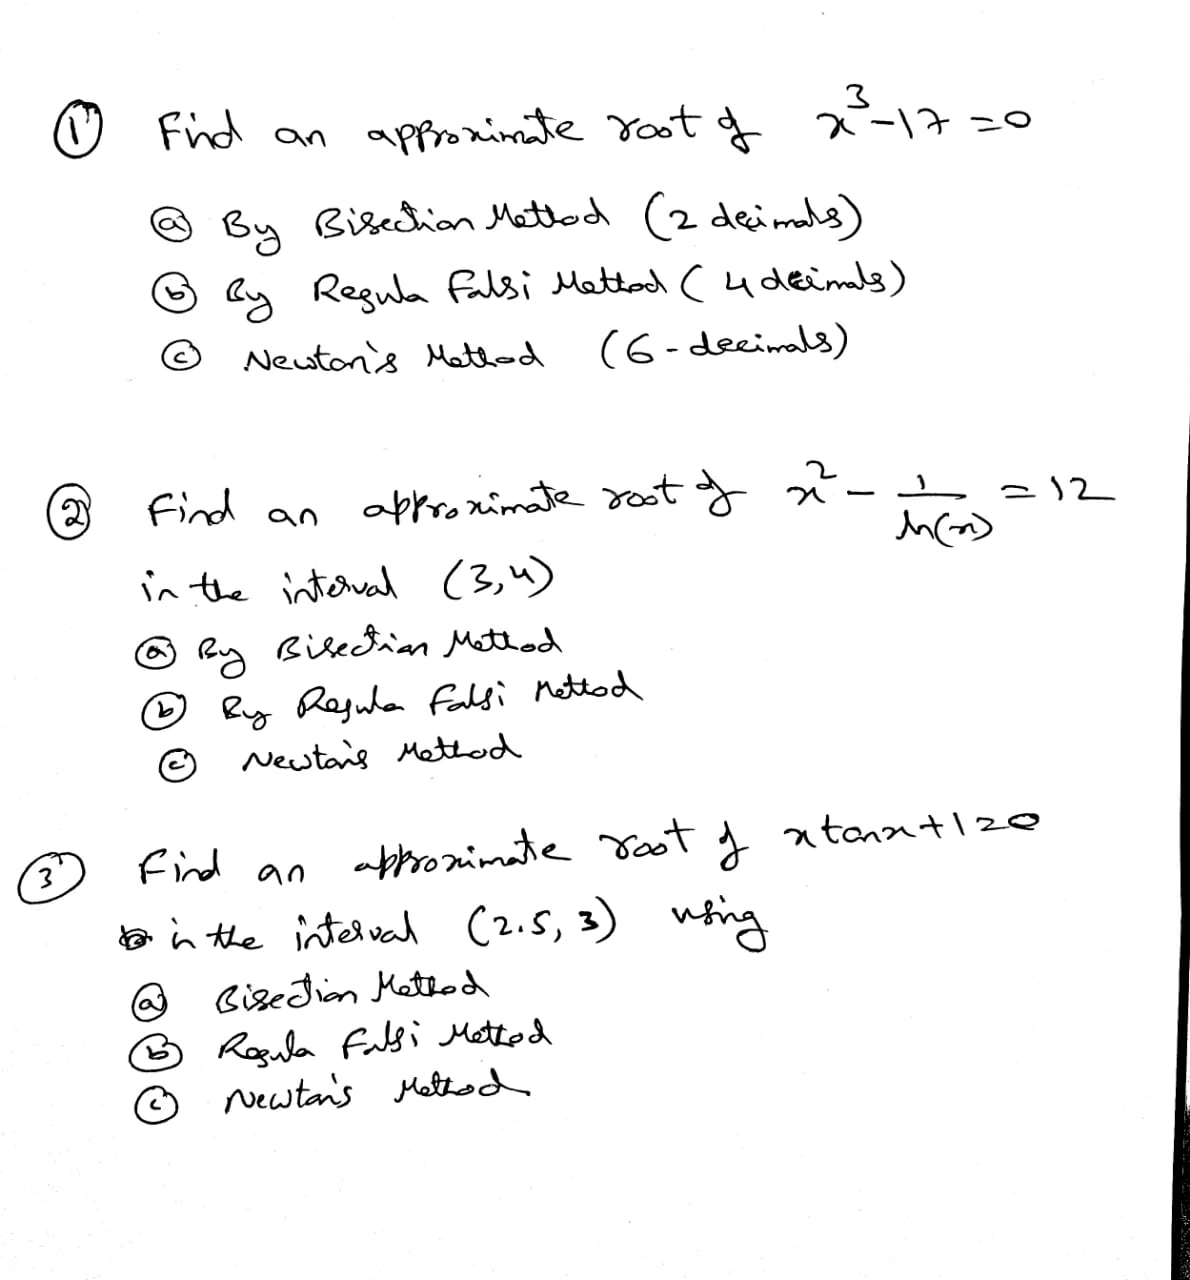 ① Find an approximate root of x³-17=0
ⓐ By Bisection Method (2 decimals)
ⓑ By Regula Falsi Method (4 decimals)
ⓒ Newton's Method (6-decimals)
② Find an approximate root of x² - 1/ln(x) = 12
in the interval (3,4)
ⓐ By Bisection Method
ⓑ By Regula Falsi Method
ⓒ Newton's Method
③ Find an approximate root of x tanx+1=0
in the interval (2.5, 3) using
ⓐ Bisection Method
ⓑ Regula Falsi Method
ⓒ Newton's Method